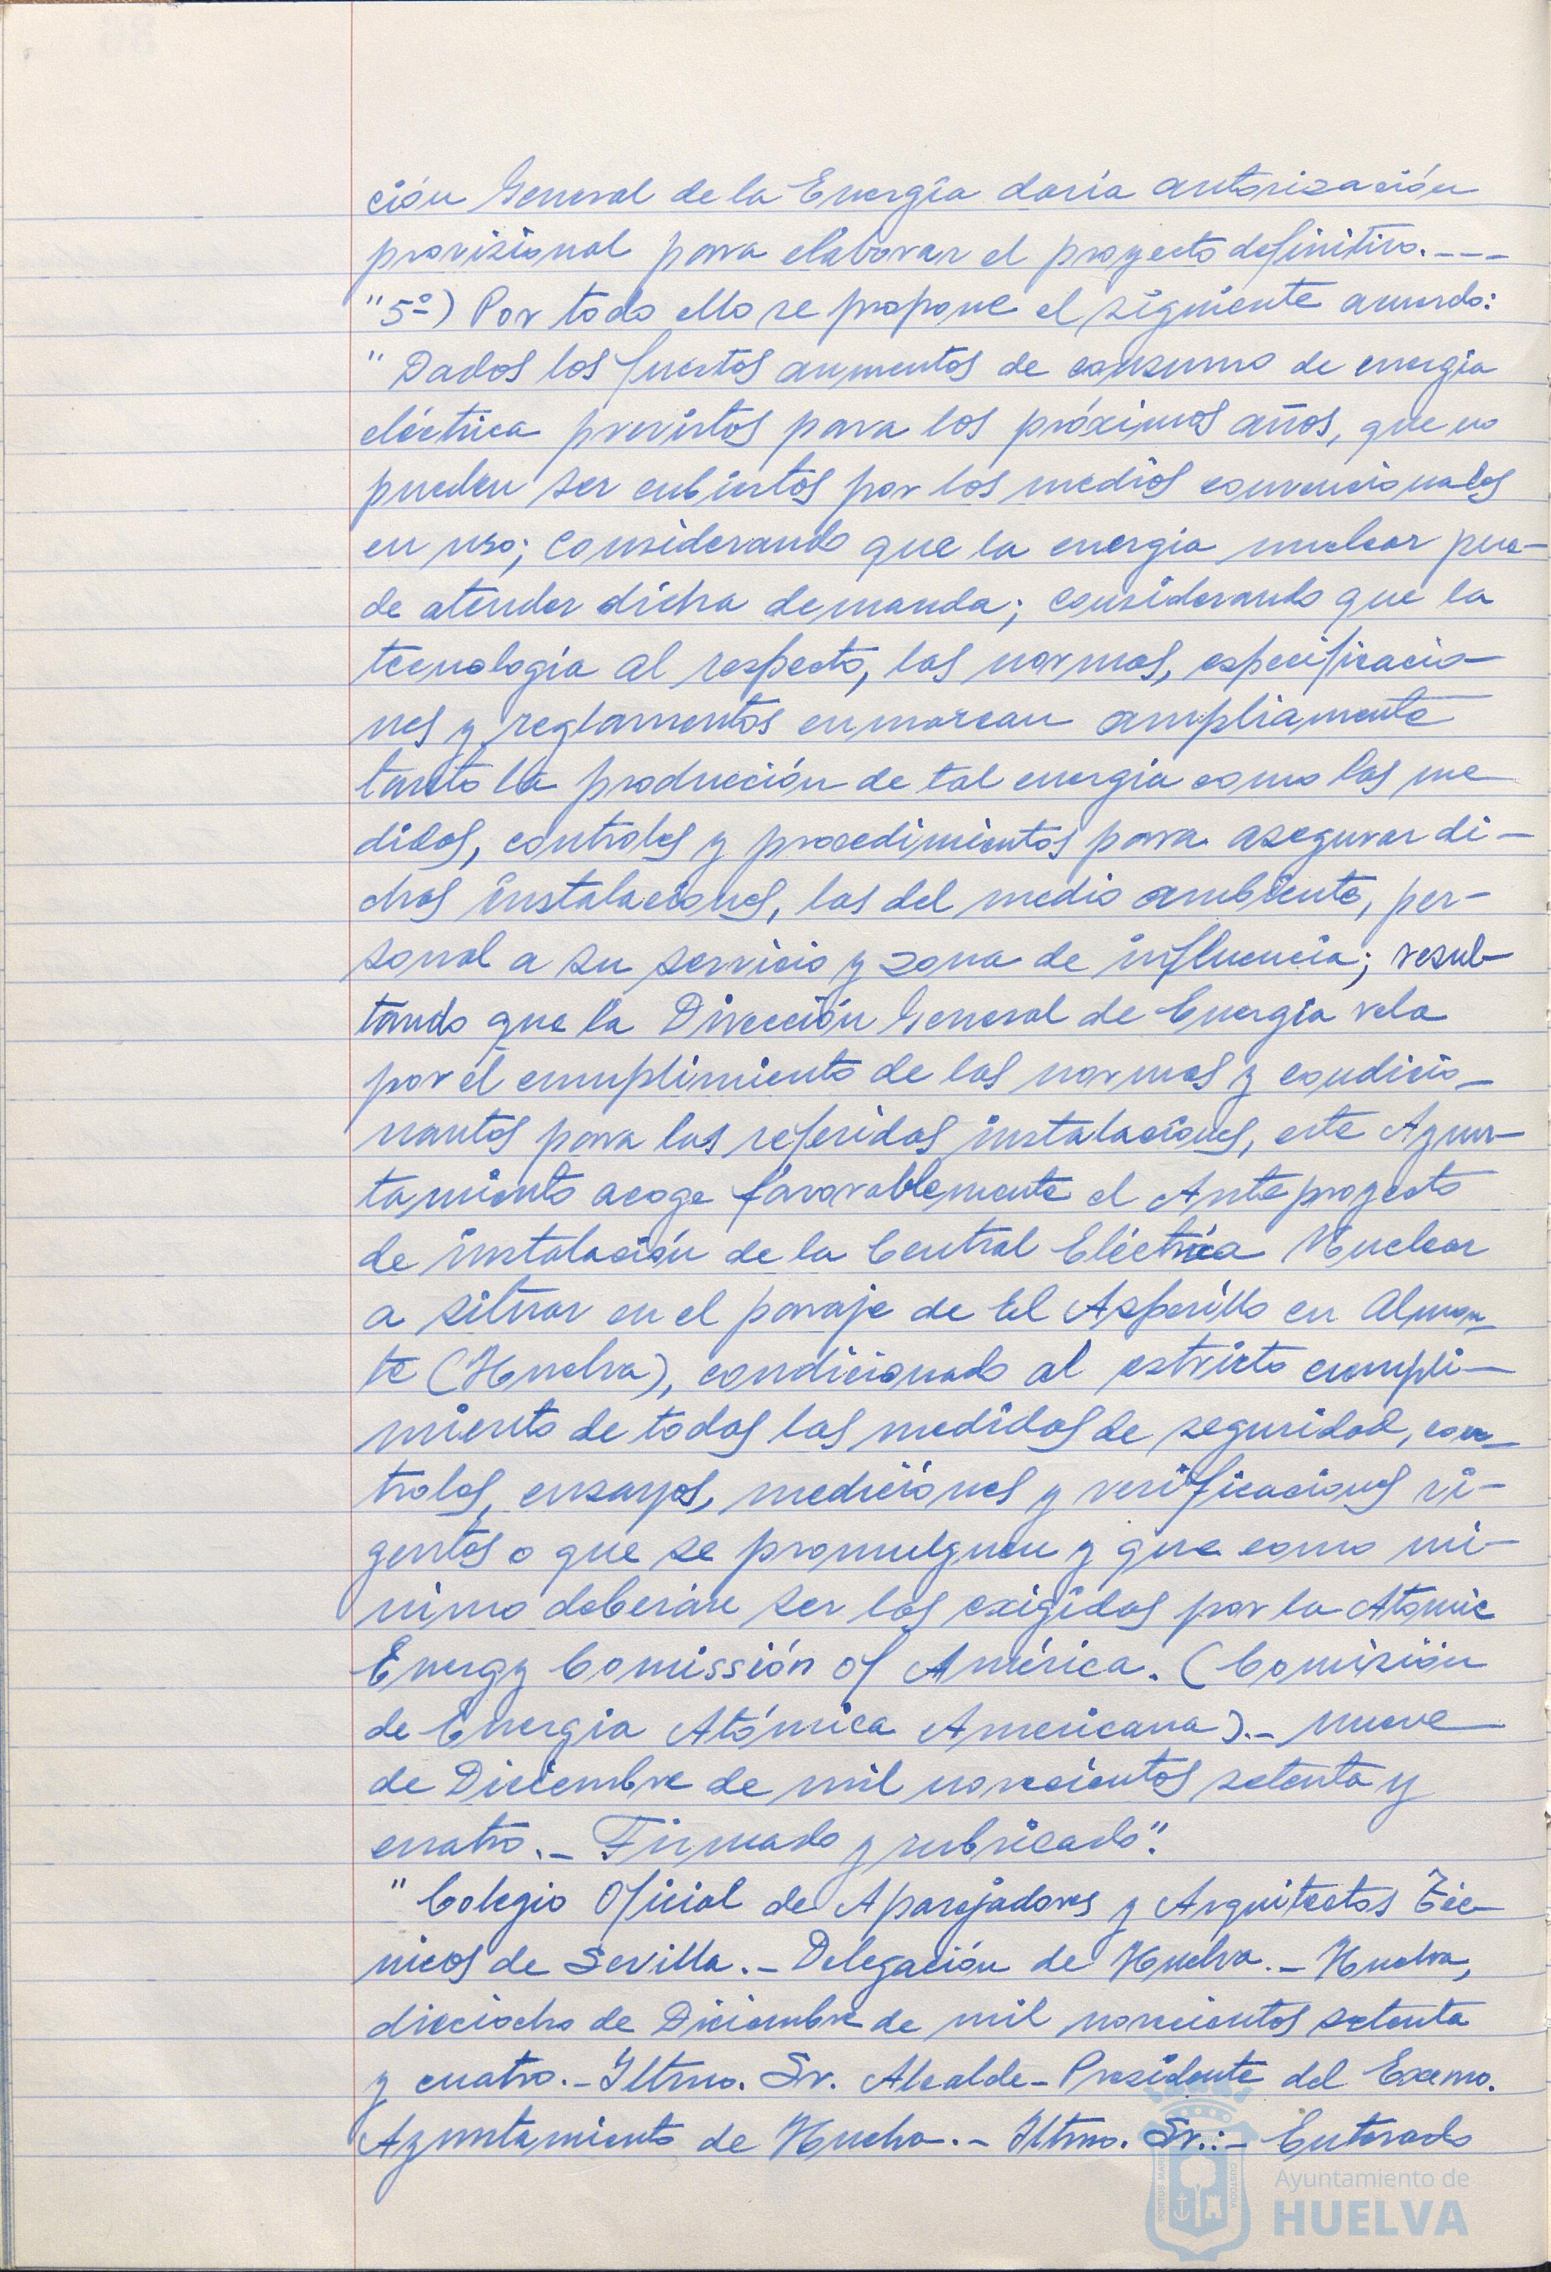 ción General de la Energía daría autorización
provisional para elaborar el proyecto definitivo.----
"5º) Por todo ello se propone el siguiente acuerdo:
" Dados los fuertes aumentos de consumo de energía
eléctrica previstos para los próximos años, que no
pueden ser cubiertos por los medios convencionales
en uso; considerando que la energía nuclear pue-
de atender dicha demanda; considerando que la
tecnología al respecto, las normas, especificacio-
nes y reglamentos enmarcan ampliamente
tanto la producción de tal energía como las me
didas, controles y procedimientos para asegurar di-
chas instalaciones, las del medio ambiente, per-
sonal a su servicio y zona de influencia; resul-
tando que la Dirección General de Energía vela
por el cumplimiento de las normas y condicio-
nantes para las referidas instalaciones, este Ayun-
tamiento acoge favorablemente el Anteproyecto
de instalación de la Central Eléctrica Nuclear
a situar en el paraje de El Asperillo en Almon-
te (Huelva), condicionado al estricto cumpli-
miento de todas las medidas de seguridad, con-
troles, ensayos, mediciones y verificaciones vi-
gentes o que se promulguen y que como mí-
nimo deberán ser las exigidas por la Atomic
Energy Comissión of América. (Comisión
de Energía Atómica Americana).- nueve
de Diciembre de mil novecientos setenta y
cuatro.- Firmado y rubricado".
" Colegio Oficial de Aparejadores y Arquitectos Téc-
nicos de Sevilla.- Delegación de Huelva.- Huelva,
dieciocho de Diciembre de mil novecientos setenta
y cuatro.- Iltmo. Sr. Alcalde-Presidente del Excmo.
Ayuntamiento de Huelva.- Iltmo. Sr.:- Enterado
PORTUS MARIS CUSTODIA
Ayuntamiento de
HUELVA